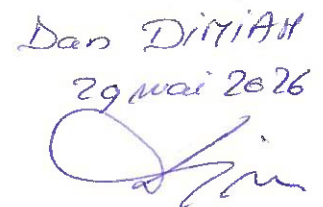 Dan DIMIAN
29 mai 2026